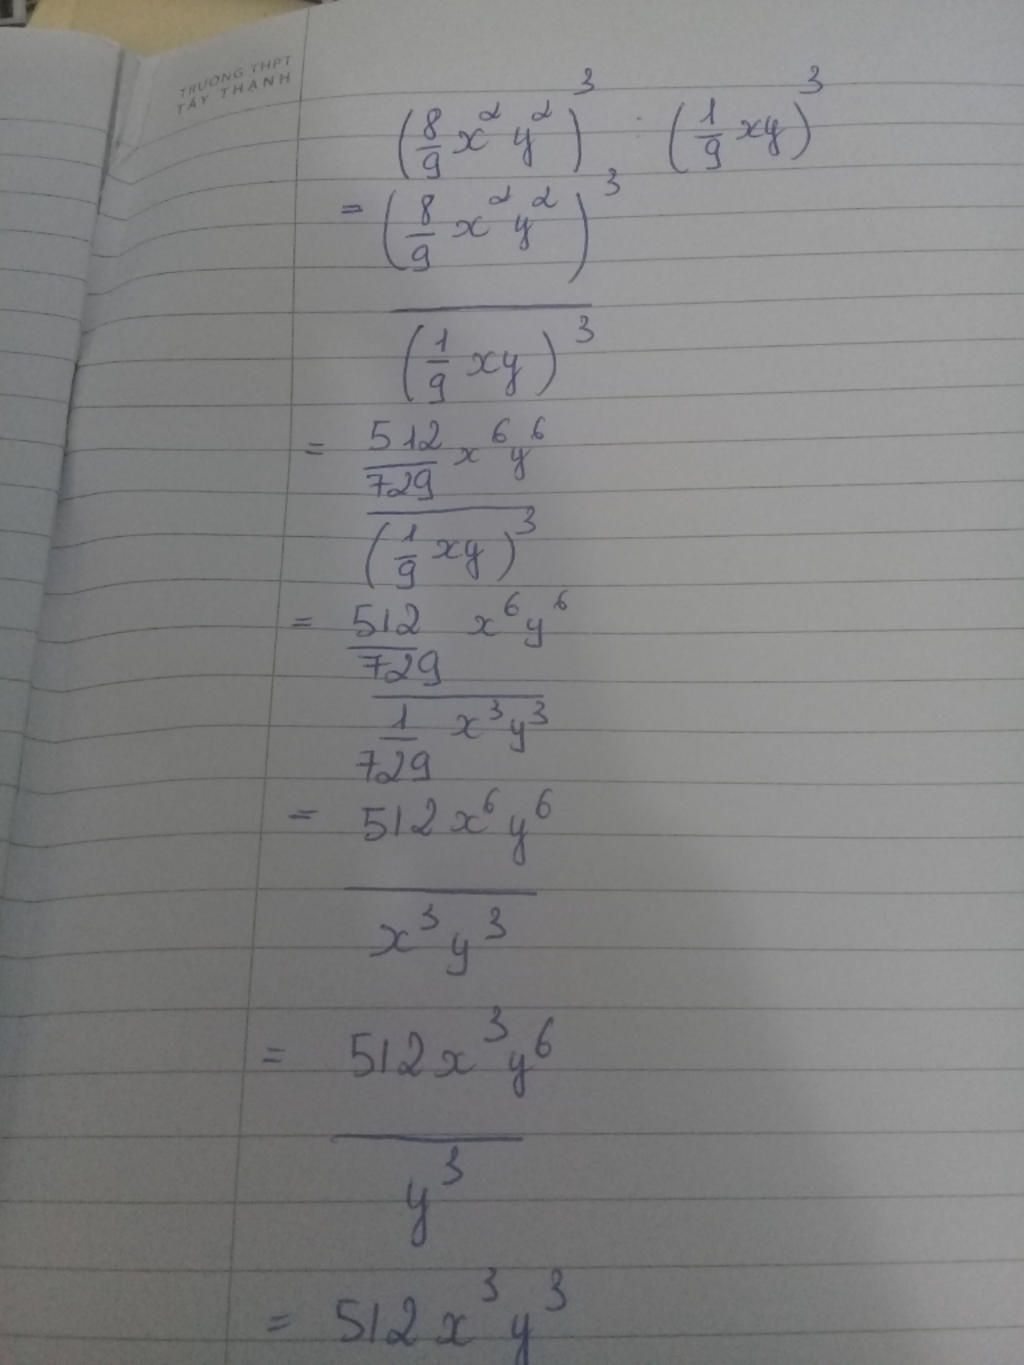 TRƯỜNG THPT
TÂY THẠNH
(8/9 x²y²)³ : (1/9 xy)³
= (8/9 x²y²)³
(1/9 xy)³
= 512/729 x⁶y⁶
(1/9 xy)³
= 512/729 x⁶y⁶
1/729 x³y³
= 512x⁶y⁶
x³y³
= 512x³y⁶
y³
= 512x³y³